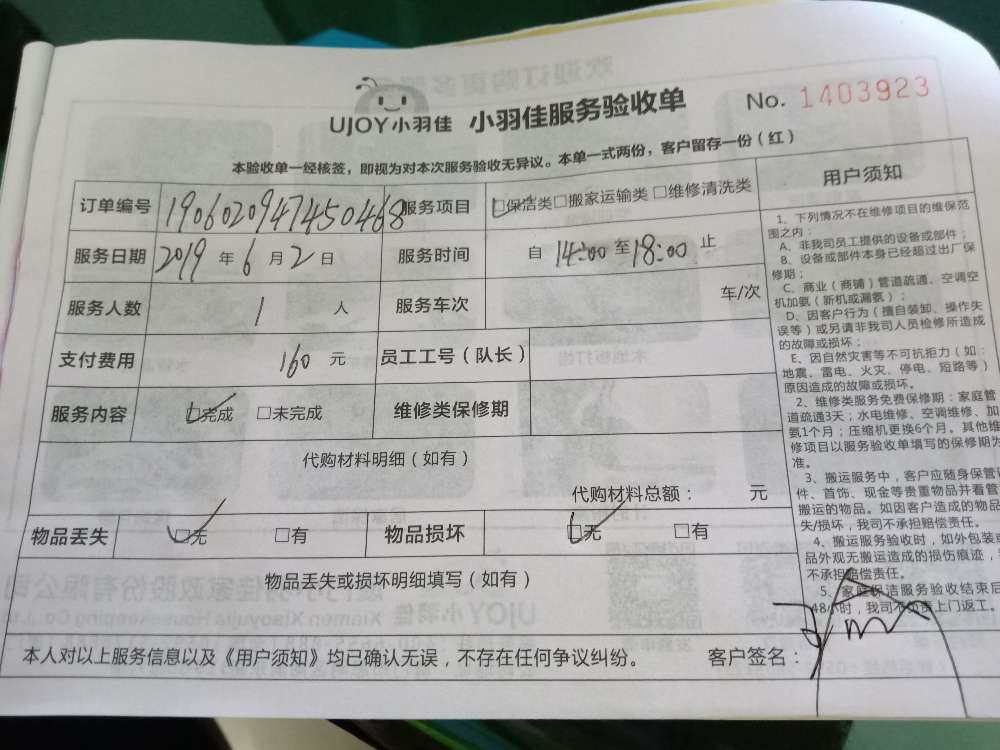 UJOY小羽佳 小羽佳服务验收单 No. 1403923
本验收单一经核签，即视为对本次服务验收无异议。本单一式两份，客户留存一份（红）
订单编号 1906020947450468 服务项目 ☑保洁类 □搬家运输类 □维修清洗类
服务日期 2019 年 6 月 2 日 服务时间 自 14:00 至 18:00 止
服务人数 1 人 服务车次 车/次
支付费用 160 元 员工工号（队长）
服务内容 ☑完成 □未完成 维修类保修期
代购材料明细（如有）
代购材料总额： 元
物品丢失 ☑无 □有 物品损坏 ☑无 □有
物品丢失或损坏明细填写（如有）
本人对以上服务信息以及《用户须知》均已确认无误，不存在任何争议纠纷。 客户签名：
用户须知
1、下列情况不在维修项目的维保范
围之内：
A、非我司员工提供的设备或部件；
B、设备或部件本身已经超过出厂保
修期；
C、商业（商铺）管道疏通、空调空
机加氨（新机或漏氨）；
D、因客户行为（擅自装卸、操作失
误等）或另请非我司人员检修所造成
的故障或损坏；
E、因自然灾害等不可抗拒力（如：
地震、雷电、火灾、停电、短路等）
原因造成的故障或损坏。
2、维修类服务免费保修期：家庭管
道疏通3天；水电维修、空调维修、加
氨1个月；压缩机更换6个月。其他维
修项目以服务验收单填写的保修期为
准。
3、搬运服务中，客户应随身保管证
件、首饰、现金等贵重物品并看管
搬运的物品。如因客户造成的物品
失/损坏，我司不承担赔偿责任。
4、搬运服务验收时，如外包装或
品外观无搬运造成的损伤痕迹，
不承担赔偿责任。
5、家庭保洁服务验收结束后
48小时，我司不负责上门返工。